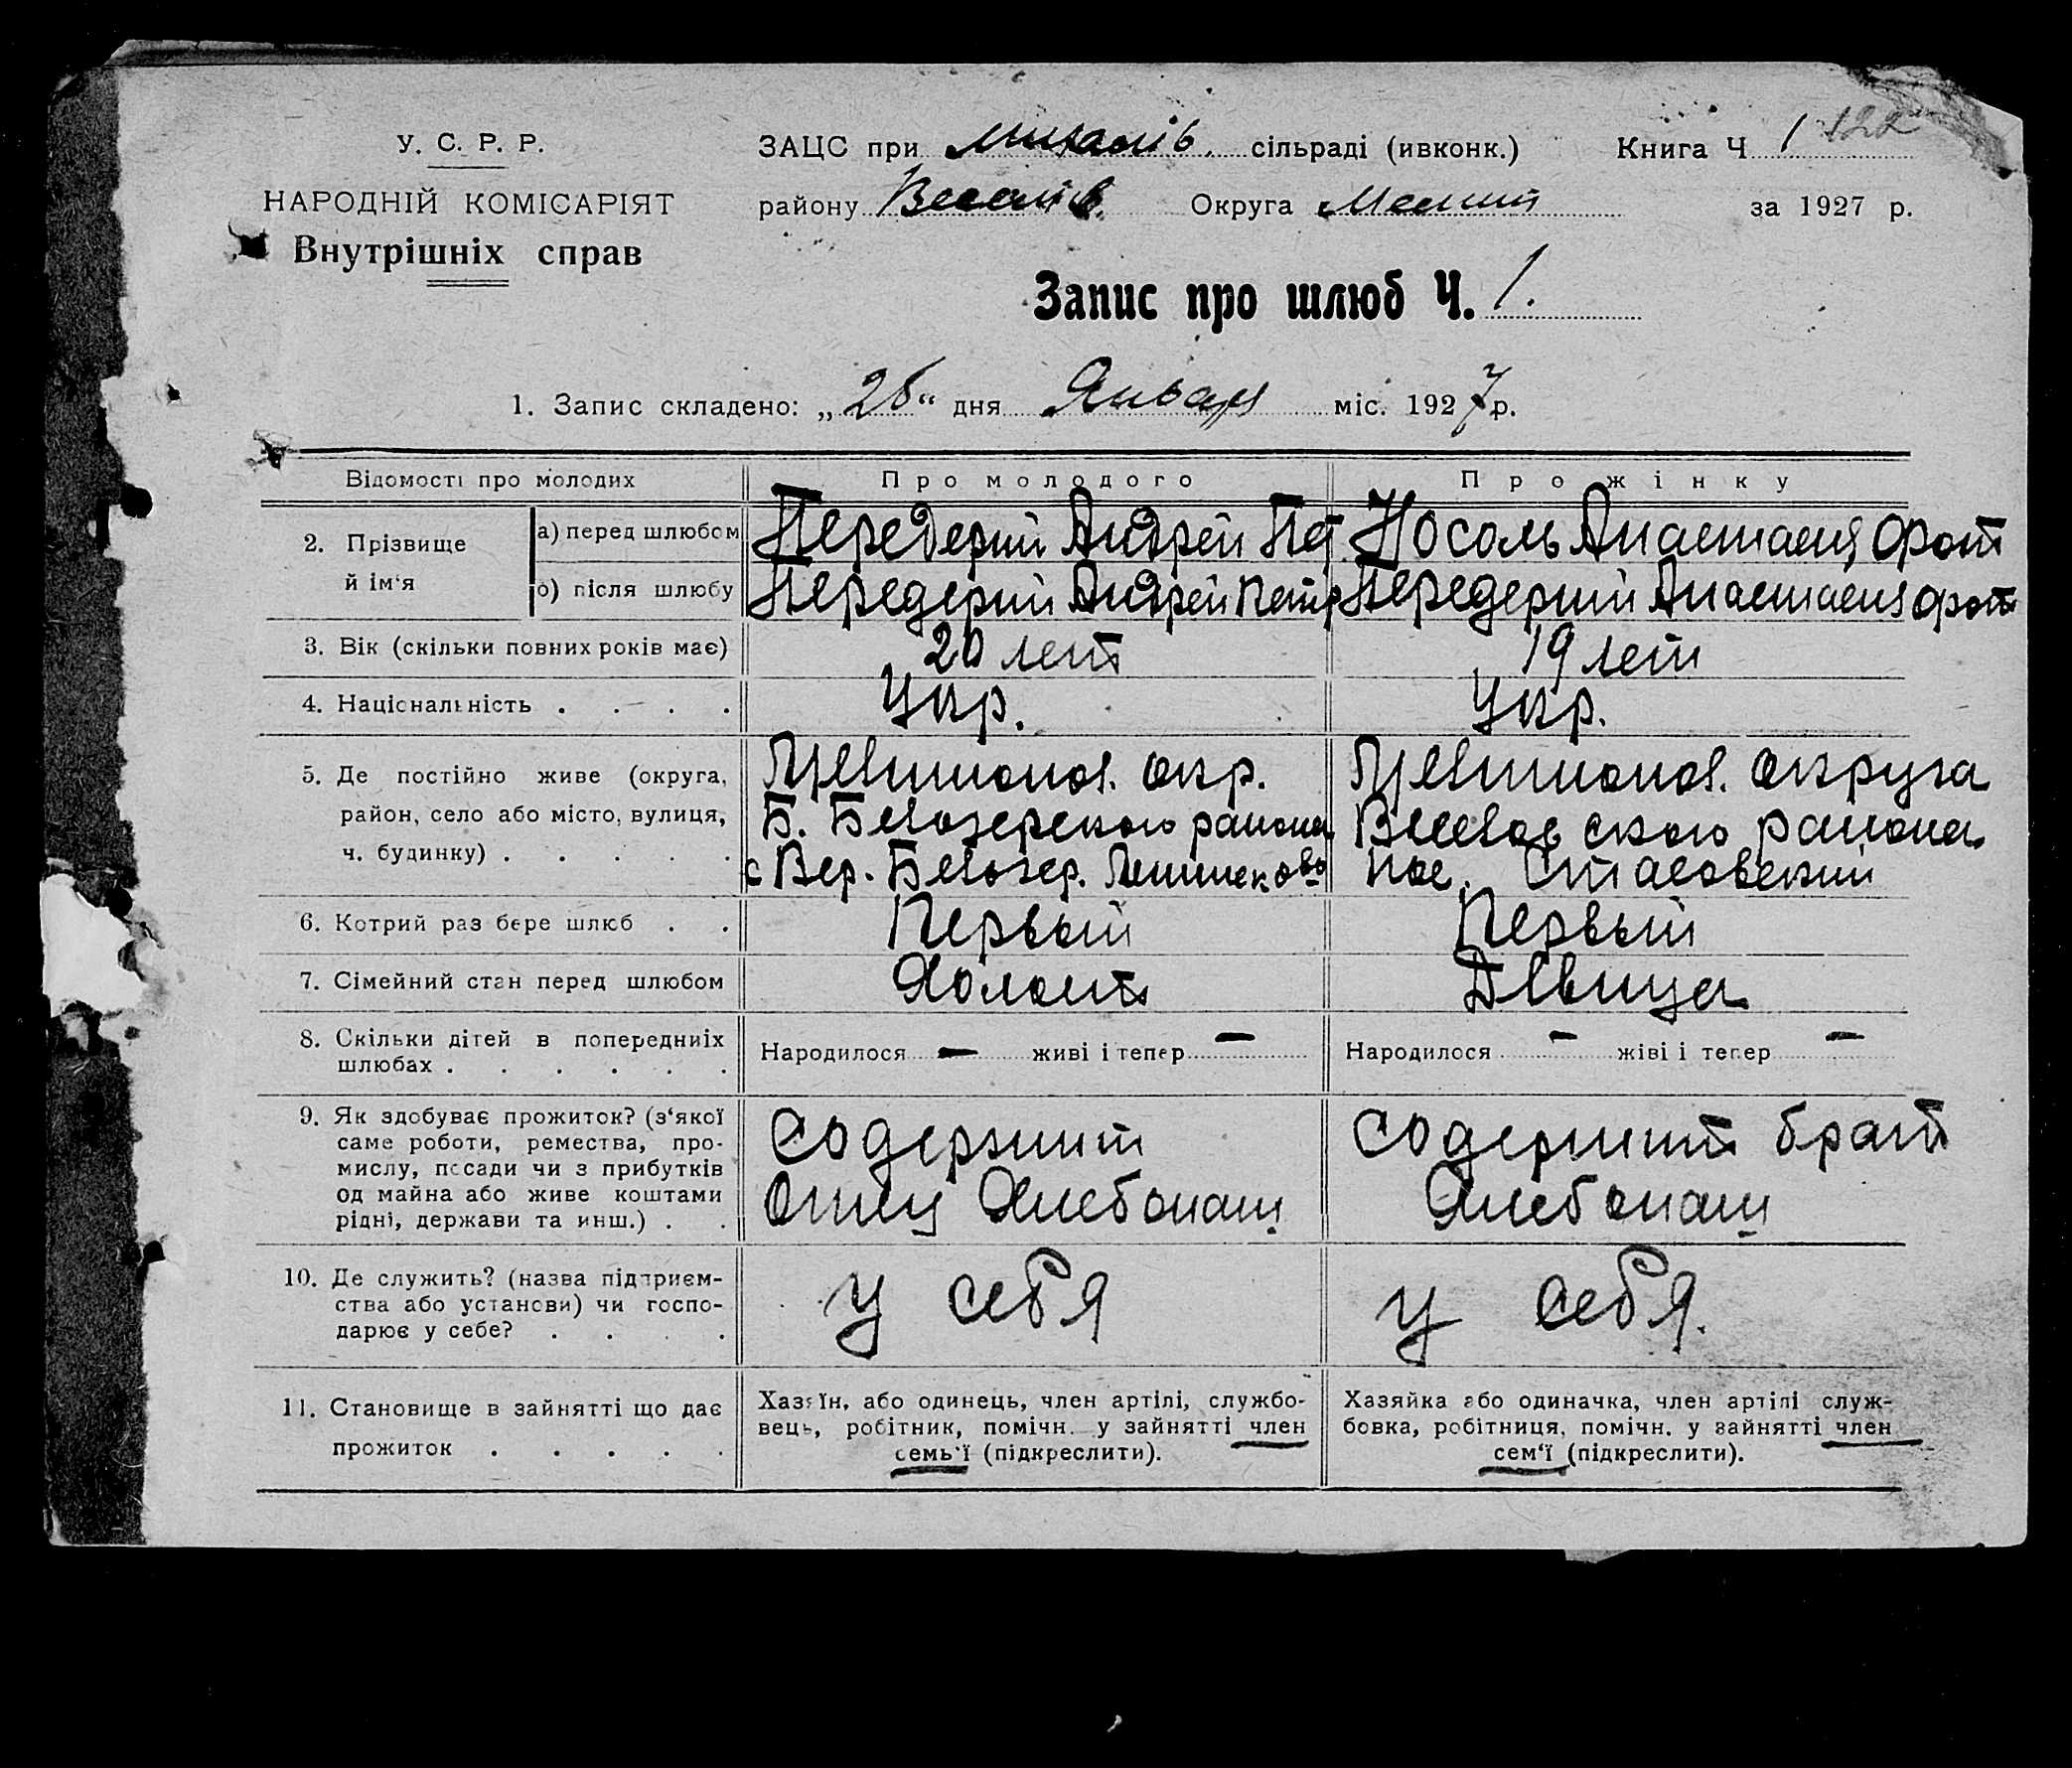 У. С. Р. Р.
НАРОДНІЙ КОМІСАРІЯТ
Внутрішніх справ
ЗАЦС при Михайлів. сільраді (ивконк.) Книга Ч 1
району Веселів. Округа Мелит за 1927 р.
Запис про шлюб Ч. 1.
1. Запис складено: „26“ дня Января міс. 1927 р.
Відомості про молодих Про молодого Про жінку
2. Прізвище й ім‘я
а) перед шлюбом Передерий Андрей Пет Носоль Анастасия Фот
б) після шлюбу Передерий Андрей Петр Передерий Анастасия Фот
3. Вік (скільки повних років має) 20 лет 19 лет
4. Національність . . . . Укр. Укр.
5. Де постійно живе (округа,
район, село або місто, вулиця,
ч. будинку) . . . . .
Мелитопол. окр.
Б. Белозерского района
с Вер. Белозер.
Мелитопол. округа
Веселовского района
пос.
6. Котрий раз бере шлюб . . Первый Первый
7. Сімейний стан перед шлюбом Холост Девица
8. Скільки дітей в попередниіх
шлюбах . . . . . .
Народилося — живі і тепер —
Народилося — жіві і тепер —
9. Як здобуває прожиток? (з‘якої
саме роботи, ремества, про-
мислу, посади чи з прибутків
од майна або живе коштами
рідні, держави та инш.) . .
Содержит
Отец Хлебопаш
Содержит брат
Хлебопаш
10. Де служить? (назва підприєм-
ства або установи) чи госпо-
дарює у себе? . . . .
У себя
У себя.
11. Становище в зайнятті що дає
прожиток . . . . .
Хазяїн, або одинець, член артілі, службо-
вець, робітник, помічн. у зайнятті член
семь‘ї (підкреслити).
Хазяйка або одиначка, член артілі служ-
бовка, робітниця, помічн. у зайнятті член
сем‘ї (підкреслити).